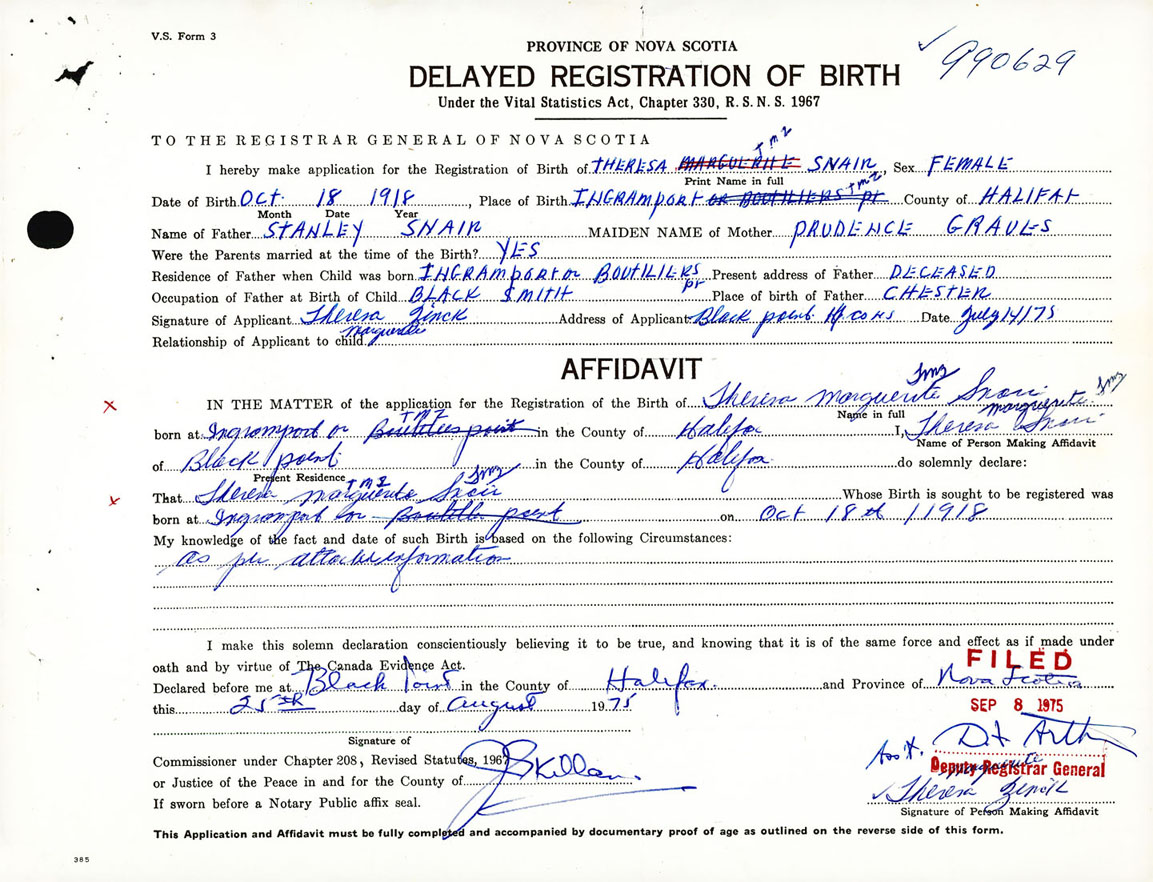 V.S. Form 3
PROVINCE OF NOVA SCOTIA
990629
DELAYED REGISTRATION OF BIRTH
Under the Vital Statistics Act, Chapter 330, R. S. N. S. 1967
TO THE REGISTRAR GENERAL OF NOVA SCOTIA
T M Z
I hereby make application for the Registration of Birth of THERESA MARGUERITE SNAIR, Sex FEMALE
Print Name in full
T M Z
Date of Birth OCT. 18 1918, Place of Birth INGRAMPORT OR BOUTILIERS pt County of HALIFAX
Month Date Year
Name of Father STANLEY SNAIR MAIDEN NAME of Mother PRUDENCE GRAUES
Were the Parents married at the time of the Birth? YES
Residence of Father when Child was born INGRAMport or BOUTILIERS pt Present address of Father DECEASED
Occupation of Father at Birth of Child BLACK SMITH Place of birth of Father CHESTER
Signature of Applicant Theresa Zinck Address of Applicant Black point Hfx co NS Date July 14/75
Marguerite
Relationship of Applicant to child
AFFIDAVIT
Tmz
Tmz
IN THE MATTER of the application for the Registration of the Birth of Theresa Marguerite Snair
Name in full
marguerite
T M Z
born at Ingramport or Boutiliers point in the County of Halifax I, Theresa Snair
Name of Person Making Affidavit
of Black point in the County of Halifax do solemnly declare:
Present Residence
T M Z
Tmz
That Theresa Marguerite Snair Whose Birth is sought to be registered was
born at Ingramport or Boutilier point on Oct 18th 1918
My knowledge of the fact and date of such Birth is based on the following Circumstances:
as per attache information
I make this solemn declaration conscientiously believing it to be true, and knowing that it is of the same force and effect as if made under
oath and by virtue of The Canada Evidence Act.
FILED
Declared before me at Black Point in the County of Halifax and Province of Nova Scotia
this 25th day of August 1975
SEP 8 1975
Signature of
Commissioner under Chapter 208, Revised Statutes, 1967
Ass't.
Deputy Registrar General
or Justice of the Peace in and for the County of
Marguerite
Theresa Zinck
If sworn before a Notary Public affix seal.
Signature of Person Making Affidavit
This Application and Affidavit must be fully completed and accompanied by documentary proof of age as outlined on the reverse side of this form.
385